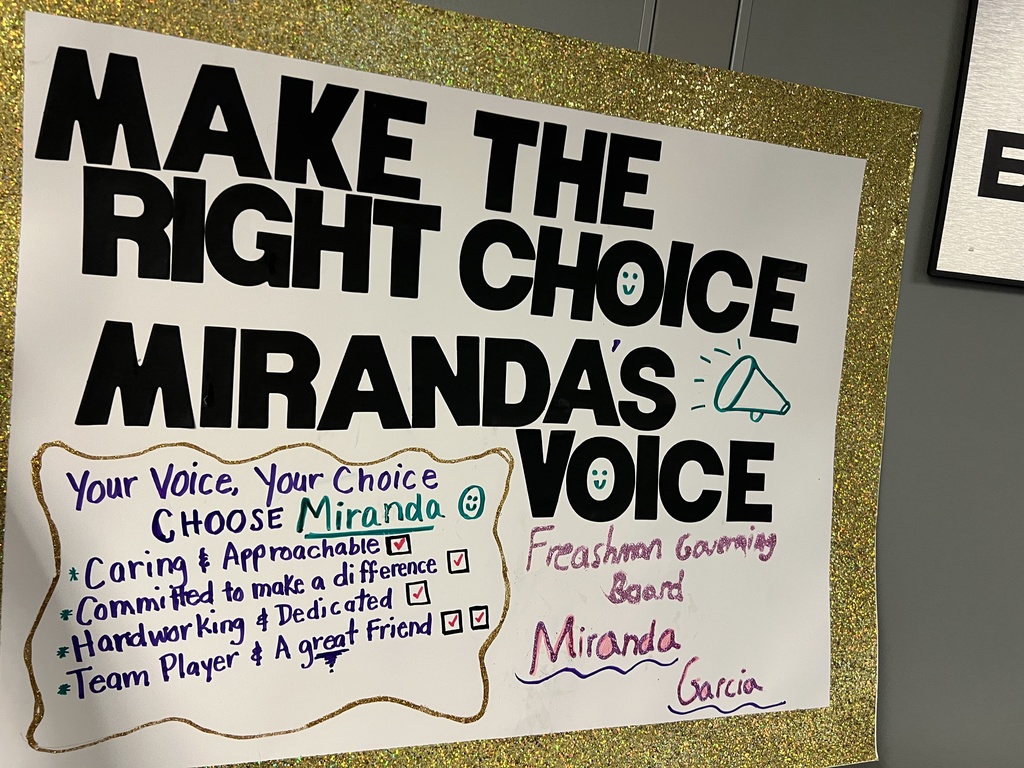 MAKE THE
RIGHT CHOICE
MIRANDA'S
VOICE
Your Voice, Your Choice
CHOOSE Miranda
* Caring & Approachable
* Committed to make a difference
* Hardworking & Dedicated
* Team Player & A great Friend
Freashman Governing
Board
Miranda
Garcia
E